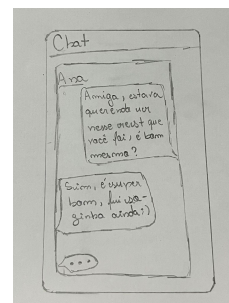 Chat
Ana
Amiga, estava
querendo ver
nesse que
você foi, é bom
mesmo?
Sim, é super
bom, fui
ginha ainda:)
...